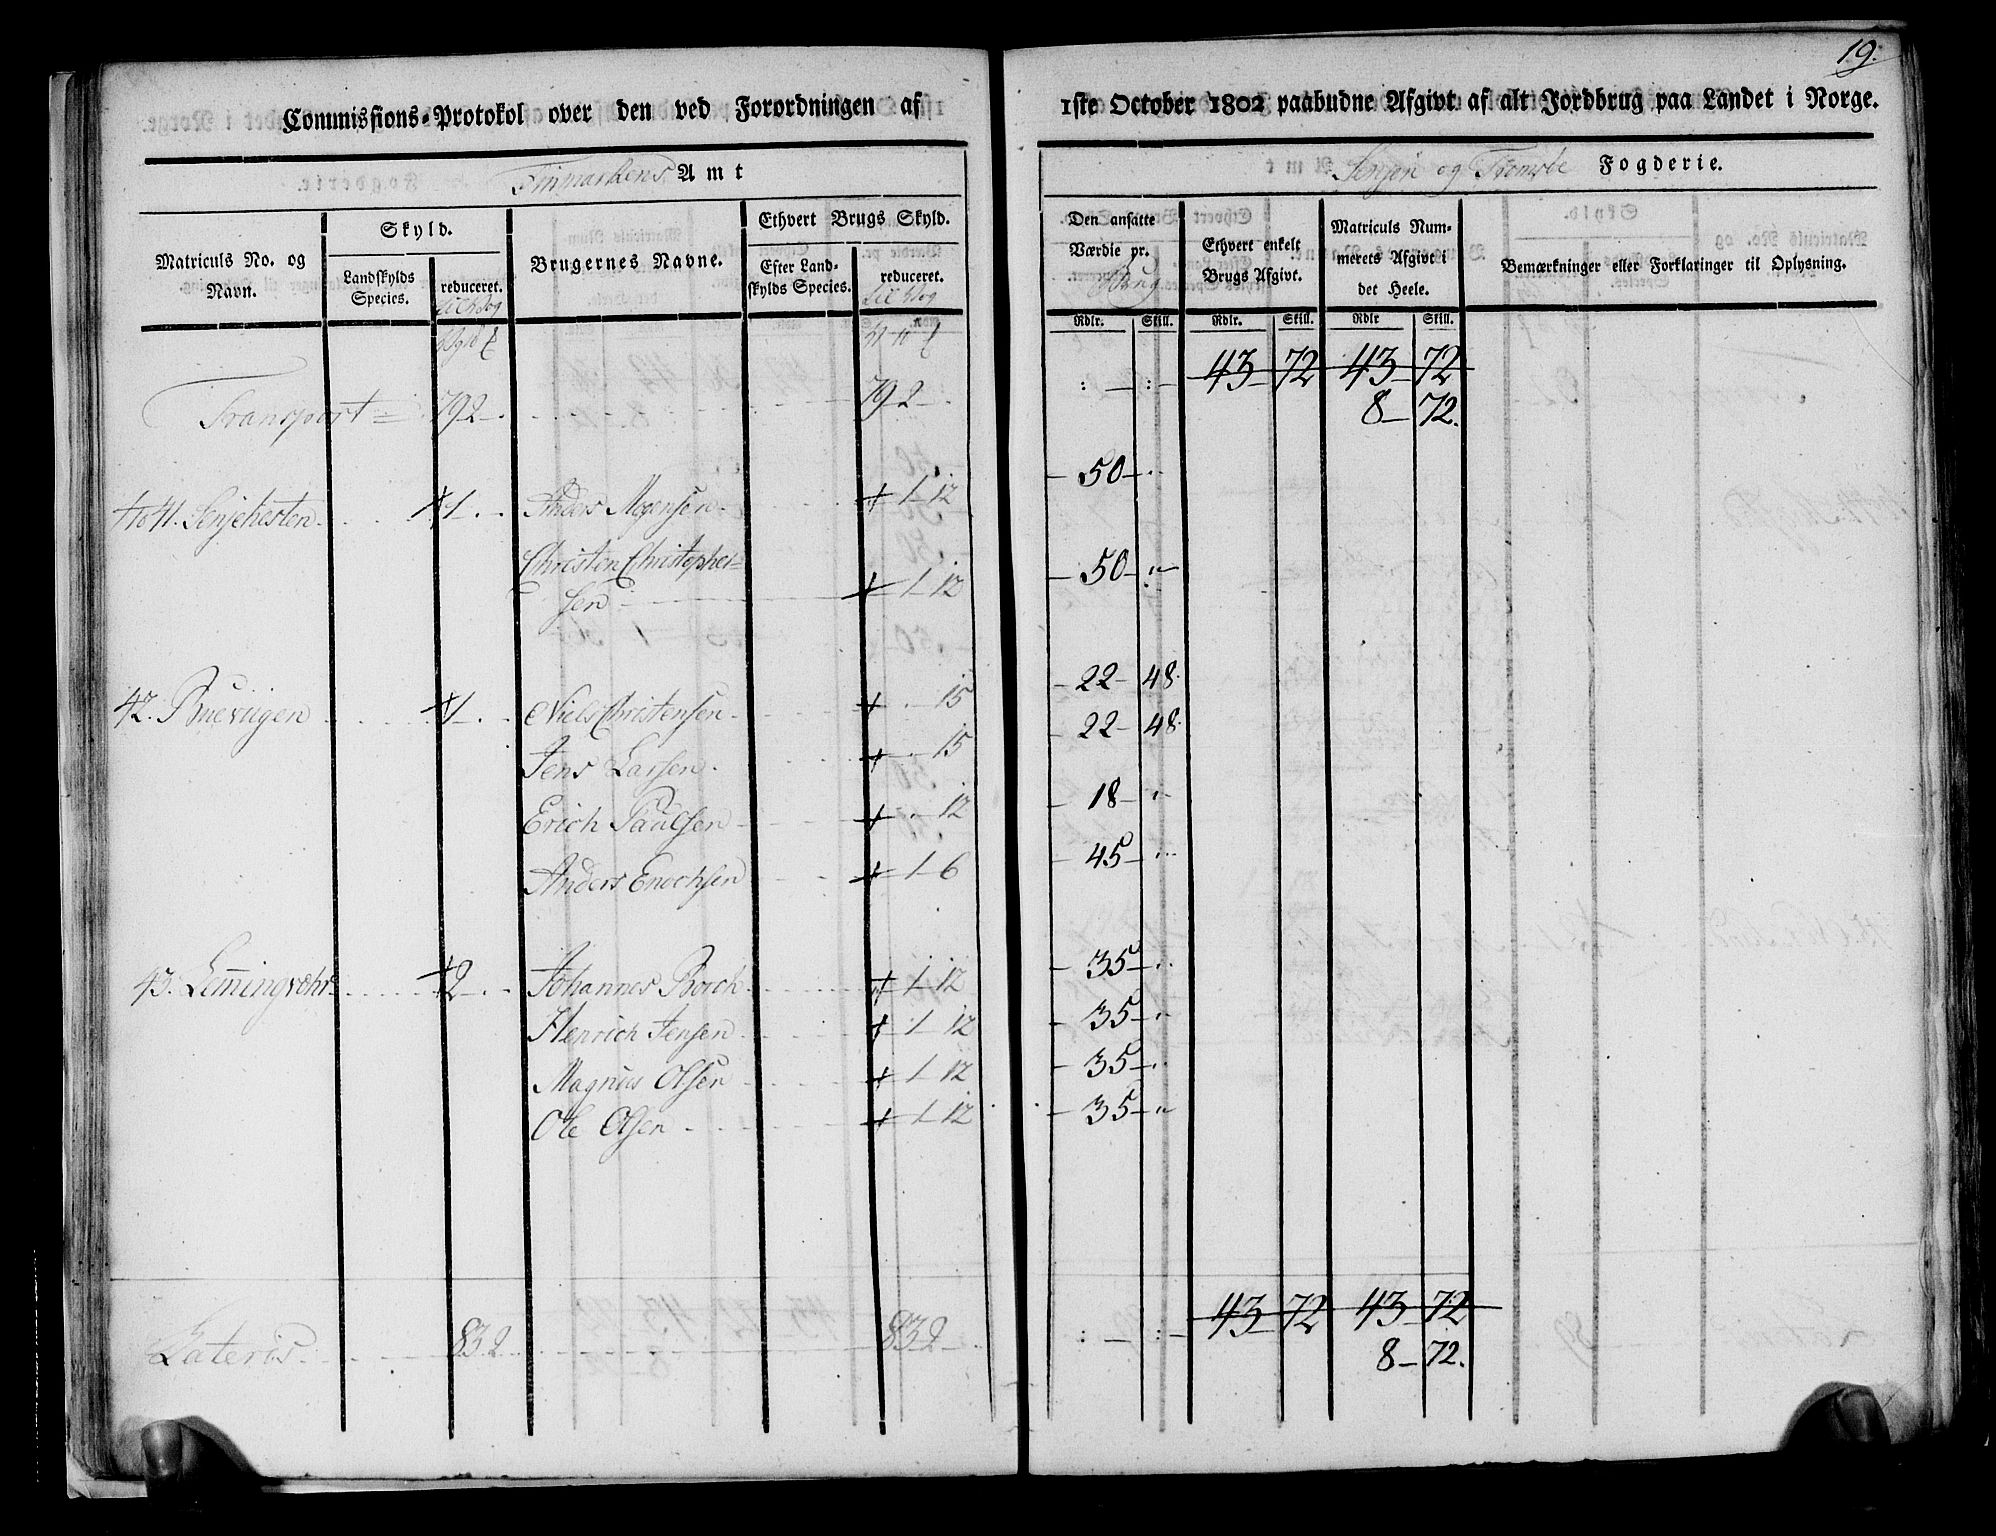 19.
Commissions-Protokol over den ved Forordningen af 1ste October 1802 paabudne Afgivt af alt Jordbrug paa Landet i Norge.
Finmarkens Amt
Senjen og Tromsøe Fogderie.
Matriculs No. og Navn.
Skyld.
Landskylds Species.
reduceret.
Brugernes Navne.
Ethvert Brugs Skyld.
Efter Landskylds Species.
reduceret.
Den ansatte Værdie pr. Brug
Ethvert enkelt Brugs Afgivt.
Matriculs Nummerets Afgivt i det Heele.
Bemærkninger eller Forklaringer til Oplysning.
Rdlr. Skill. Rdlr. Skill. Rdlr Skill.
Transport = 792 792 43 72 43 72
8 72.
No 41. Senjehesten 1 Anders Mogensen 1 12 50
Christen Christopher=
sen 1 12 50
42. Bueviigen 1 Niels Christensen 15 22 48
Jens Larsen 15 22 48
Erich Paulsen 12 18
Anders Enochsen 1 6 45
43. Lemingvær 2 Johannes Borch 1 12 35
Henrich Jensen 1 12 35
Magnus Olsen 1 12 35
Ole Olsen 1 12 35
Lateris 832 832 43 72 43 72
8 72.